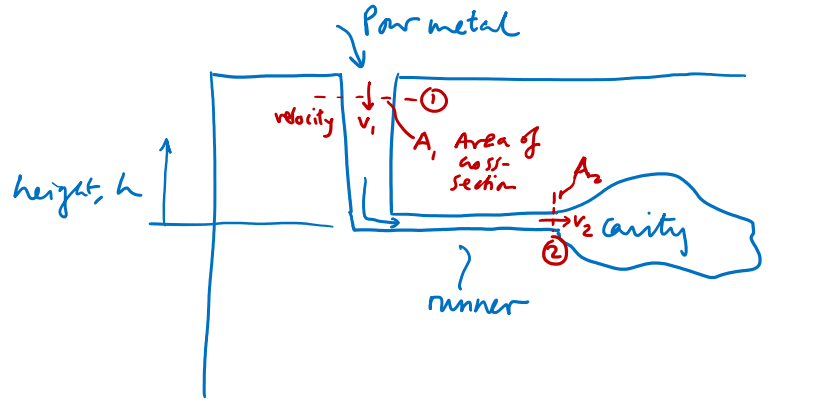 Pour metal
①
velocity
v₁
A₁ Area of
cross-
section
height, h
A₂
v₂
cavity
②
runner